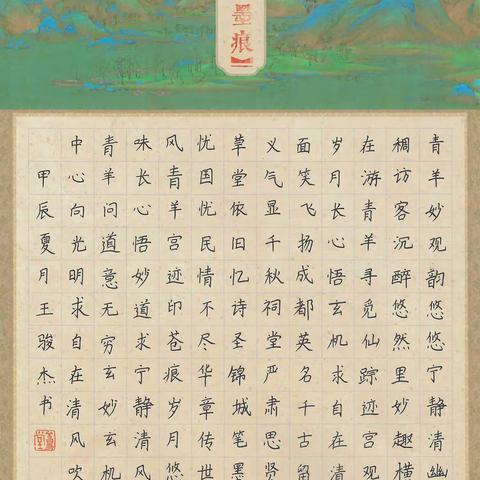 墨痕
青羊妙观韵悠悠宁静清幽
稠访客沉醉悠然里妙趣横
在游青羊寻觅仙踪迹宫观
岁月长心悟玄机求自在清
面笑飞扬成都英名千古留
义气显千秋祠堂严肃思贤
草堂依旧忆诗圣锦城笔墨
忧国忧民情不尽华章传世
风青羊宫迹印苍痕岁月悠
味长心悟妙道求宁静清风
青羊问道意无穷玄妙玄机
中心向光明求自在清风吹
甲辰夏月王骏杰书